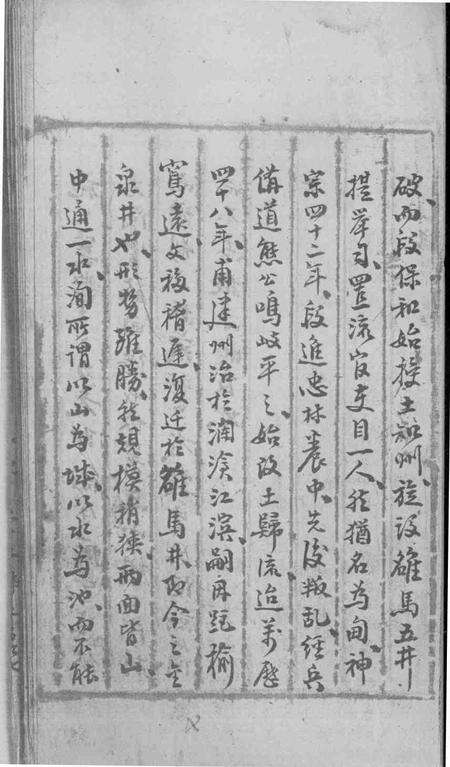 破、而段保和始授土知州、旋設雒馬五井
提举司、置流官吏目一人、然猶名為甸、神
宗四十二年、段進忠林養中先後叛乱、經兵
備道熊公鳴岐平之、始改土歸流、迨萬歷
四十八年、甫建州治於瀾滄江濱、嗣因距榆
窵遠、文移稽遲、復迁於雒馬井、即今之金
泉井也、形势雖勝、然規模稍狹、兩面皆山、
中通一水、洵所謂以山為城、以水為池、而不能